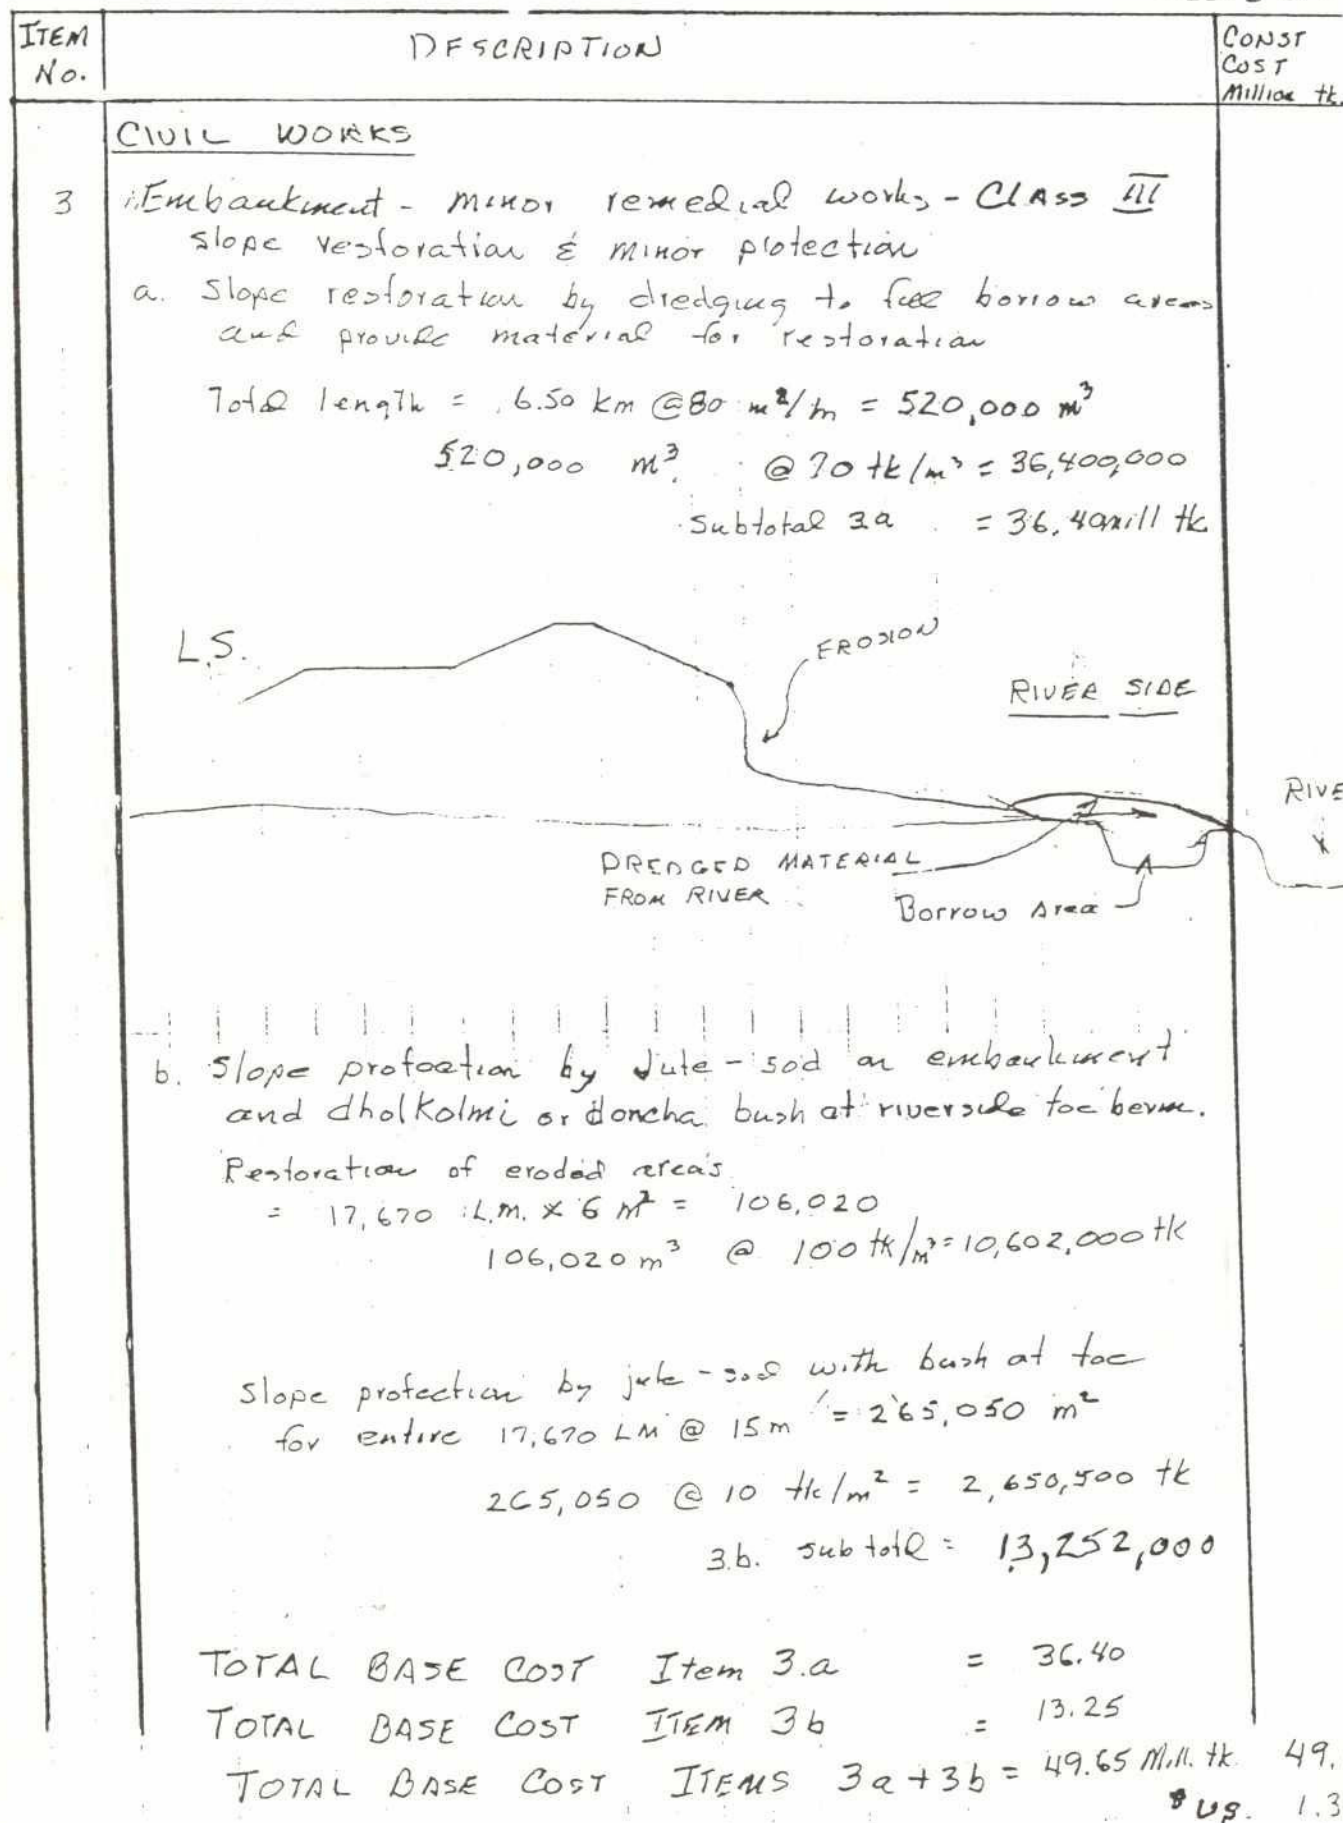 ITEM No.
DESCRIPTION
CONST COST Million tk.
CIVIL WORKS
3 Embankment - minor remedial works - CLASS III
slope restoration & minor protection
a. Slope restoration by dredging to fill borrow areas
and provide material for restoration
Total length = 6.50 km @ 80 m²/m = 520,000 m³
520,000 m³ @ 70 tk/m³ = 36,400,000
Subtotal 3a = 36.40 mill tk
L.S.
EROSION
RIVER SIDE
RIVE
DREDGED MATERIAL
FROM RIVER
Borrow Area
b. Slope protection by Jute - sod on embankment
and dholkolmi or doncha bush at riverside toe berm.
Restoration of eroded area's
= 17,670 L.M. x 6 m² = 106,020
106,020 m³ @ 100 tk/m³ = 10,602,000 tk
Slope protection by jute - sod with bush at toe
for entire 17,670 LM @ 15 m = 265,050 m²
265,050 @ 10 tk/m² = 2,650,500 tk
3.b. subtotl = 13,252,000
TOTAL BASE COST Item 3.a = 36.40
TOTAL BASE COST ITEM 3b = 13.25
TOTAL BASE COST ITEMS 3a + 3b = 49.65 Mill. tk 49.
$ US. 1.3